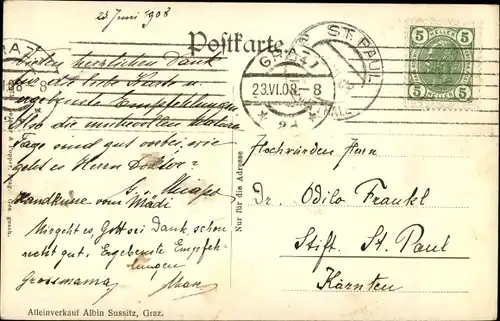 23 Juni 1908
Postkarte
ST. PAUL
GRAZ
23.VI.08 - 8
* 2d *
5 HELLER 5
5 5
Vielen herzlichen Dank
für liebe Karte u.
ergebenste Empfehlungen
Also die
Tage sind gut vorbei, wie
geht es Herrn Doktor?
Handküsse vom Mädi
Mir geht es, Gott sei Dank, schon
recht gut. Ergebenste Empfeh-
lungen
Grossmama
Nur für die Adresse
Hochwürden Herrn
Dr. Odilo Frankl
Stift St. Paul
Kärnten
Alleinverkauf Albin Sussitz, Graz.